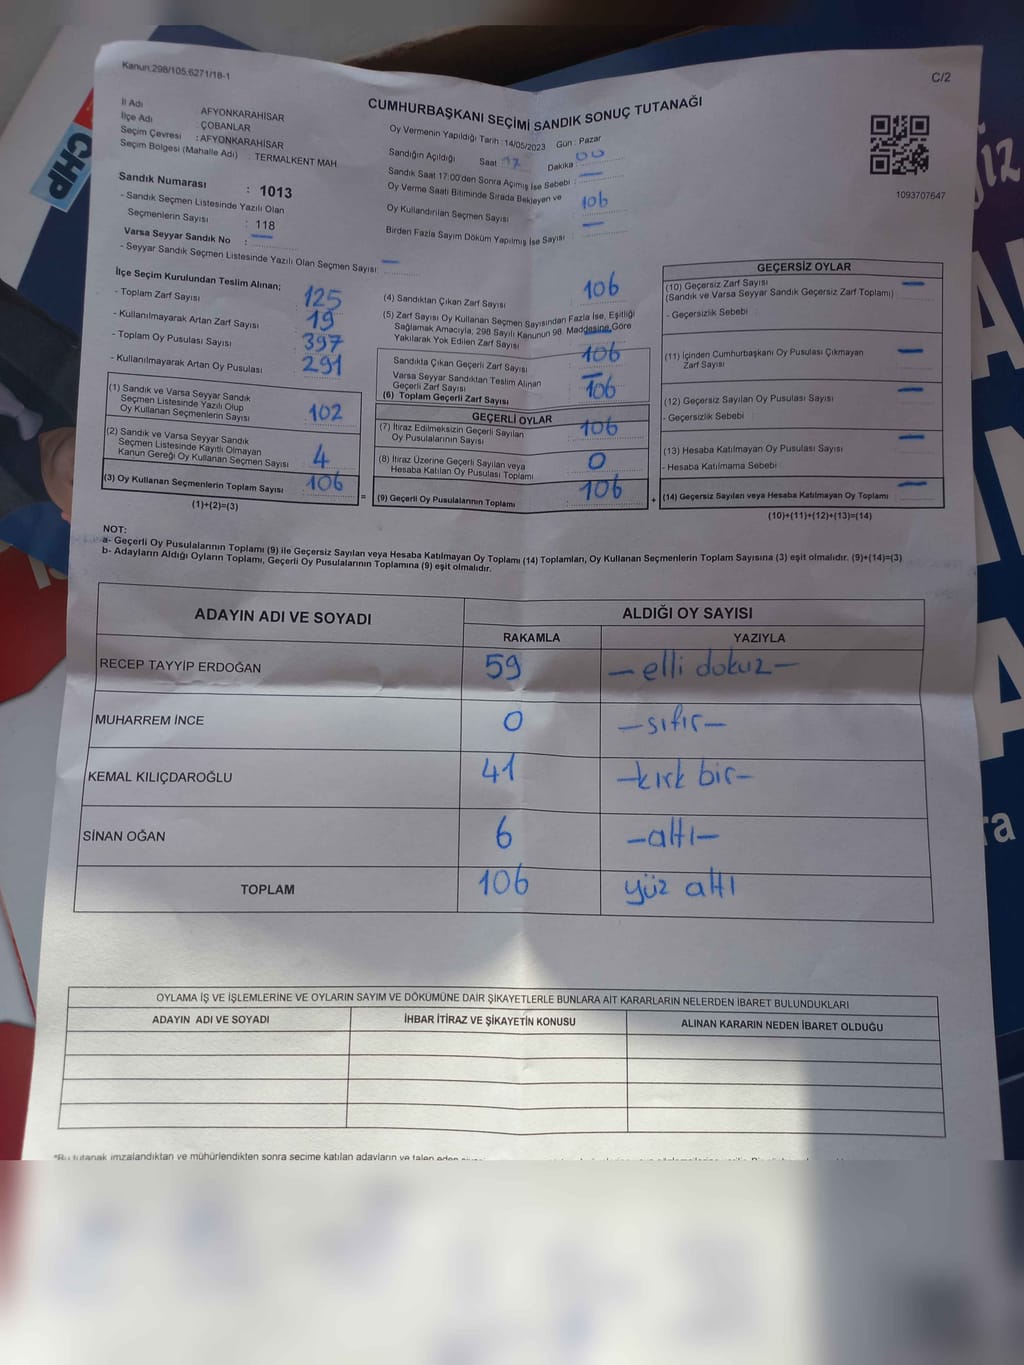 Kanun.298/105,6271/18-1
C/2
CUMHURBAŞKANI SEÇİMİ SANDIK SONUÇ TUTANAĞI
İl Adı : AFYONKARAHİSAR
İlçe Adı : ÇOBANLAR
Seçim Çevresi : AFYONKARAHİSAR
Seçim Bölgesi (Mahalle Adı) : TERMALKENT MAH
Sandık Numarası : 1013
- Sandık Seçmen Listesinde Yazılı Olan
Seçmenlerin Sayısı : 118
Varsa Seyyar Sandık No : —
- Seyyar Sandık Seçmen Listesinde Yazılı Olan Seçmen Sayısı: —
Oy Vermenin Yapıldığı Tarih : 14/05/2023 Gün : Pazar
Sandığın Açıldığı Saat 17 Dakika : 00
Sandık Saat 17:00'den Sonra Açımış İse Sebebi : —
Oy Verme Saati Bitiminde Sırada Bekleyen ve
Oy Kullandırılan Seçmen Sayısı : 106
Birden Fazla Sayım Döküm Yapılmış İse Sayısı : —
1093707647
İlçe Seçim Kurulundan Teslim Alınan;
- Toplam Zarf Sayısı : 125
- Kullanılmayarak Artan Zarf Sayısı : 19
- Toplam Oy Pusulası Sayısı : 397
- Kullanılmayarak Artan Oy Pusulası : 291
(1) Sandık ve Varsa Seyyar Sandık
Seçmen Listesinde Yazılı Olup
Oy Kullanan Seçmenlerin Sayısı : 102
(2) Sandık ve Varsa Seyyar Sandık
Seçmen Listesinde Kayıtlı Olmayan
Kanun Gereği Oy Kullanan Seçmen Sayısı : 4
(3) Oy Kullanan Seçmenlerin Toplam Sayısı : 106
(1)+(2)=(3)
(4) Sandıktan Çıkan Zarf Sayısı : 106
(5) Zarf Sayısı Oy Kullanan Seçmen Sayısından Fazla İse, Eşitliği
Sağlamak Amacıyla; 298 Sayılı Kanunun 98. Maddesine Göre
Yakılarak Yok Edilen Zarf Sayısı : —
Sandıkla Çıkan Geçerli Zarf Sayısı : 106
Varsa Seyyar Sandıktan Teslim Alınan
Geçerli Zarf Sayısı : —
(6) Toplam Geçerli Zarf Sayısı : 106
GEÇERLİ OYLAR
(7) İtiraz Edilmeksizin Geçerli Sayılan
Oy Pusulalarının Sayısı : 106
(8) İtiraz Üzerine Geçerli Sayılan veya
Hesaba Katılan Oy Pusulası Toplamı : 0
= (9) Geçerli Oy Pusulalarının Toplamı : 106
GEÇERSİZ OYLAR
(10) Geçersiz Zarf Sayısı : —
(Sandık ve Varsa Seyyar Sandık Geçersiz Zarf Toplamı)
- Geçersizlik Sebebi
(11) İçinden Cumhurbaşkanı Oy Pusulası Çıkmayan
Zarf Sayısı : —
(12) Geçersiz Sayılan Oy Pusulası Sayısı : —
- Geçersizlik Sebebi
(13) Hesaba Katılmayan Oy Pusulası Sayısı : —
- Hesaba Katılmama Sebebi
+ (14) Geçersiz Sayılan veya Hesaba Katılmayan Oy Toplamı : —
(10)+(11)+(12)+(13)=(14)
NOT:
a- Geçerli Oy Pusulalarının Toplamı (9) ile Geçersiz Sayılan veya Hesaba Katılmayan Oy Toplamı (14) Toplamları, Oy Kullanan Seçmenlerin Toplam Sayısına (3) eşit olmalıdır. (9)+(14)=(3)
b- Adayların Aldığı Oyların Toplamı, Geçerli Oy Pusulalarının Toplamına (9) eşit olmalıdır.
ADAYIN ADI VE SOYADI ALDIĞI OY SAYISI
RAKAMLA YAZIYLA
RECEP TAYYİP ERDOĞAN 59 —elli dokuz—
MUHARREM İNCE 0 —sıfır—
KEMAL KILIÇDAROĞLU 41 —kırk bir—
SİNAN OĞAN 6 —altı—
TOPLAM 106 yüz altı
OYLAMA İŞ VE İŞLEMLERİNE VE OYLARIN SAYIM VE DÖKÜMÜNE DAİR ŞİKAYETLERLE BUNLARA AİT KARARLARIN NELERDEN İBARET BULUNDUKLARI
ADAYIN ADI VE SOYADI İHBAR İTİRAZ VE ŞİKAYETİN KONUSU ALINAN KARARIN NEDEN İBARET OLDUĞU
*Bu tutanak imzalandıktan ve mühürlendikten sonra seçime katılan adayların ve talep eden
CHP